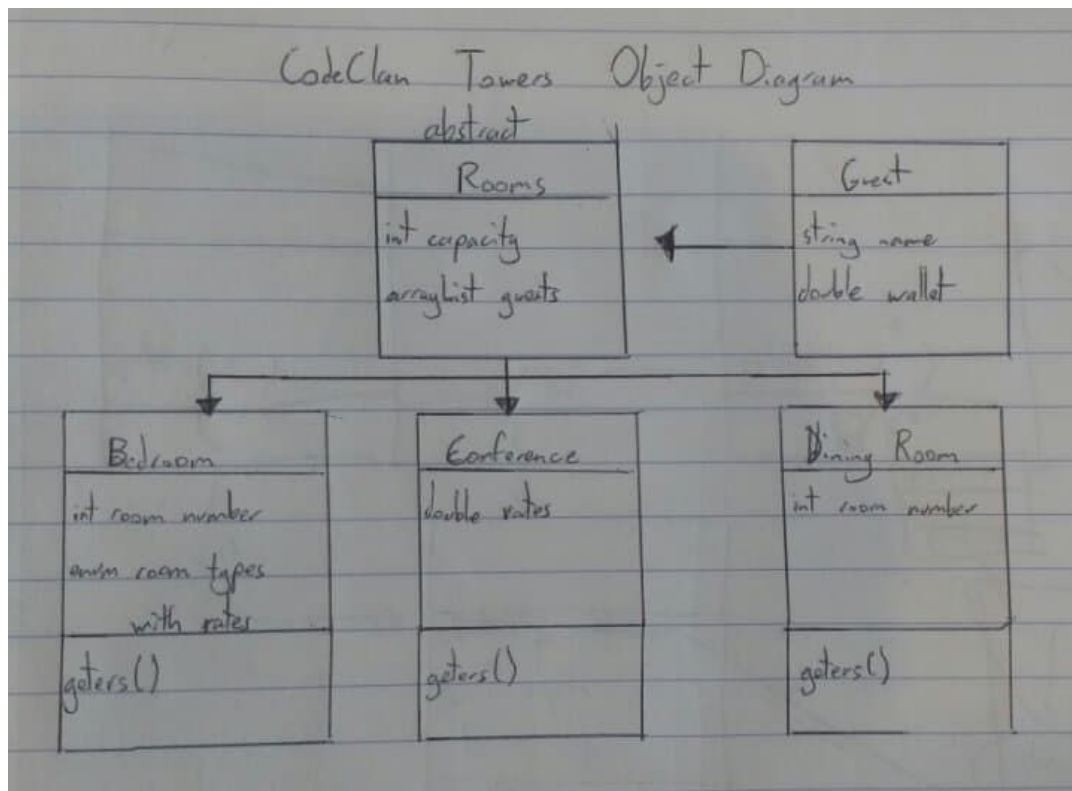 CodeClan Towers Object Diagram
abstract
Rooms
int capacity
arrayList guests
Guest
string name
double wallet
Bedroom
int room number
enum room types
with rates
geters()
Conference
double rates
geters()
Dining Room
int room number
geters()